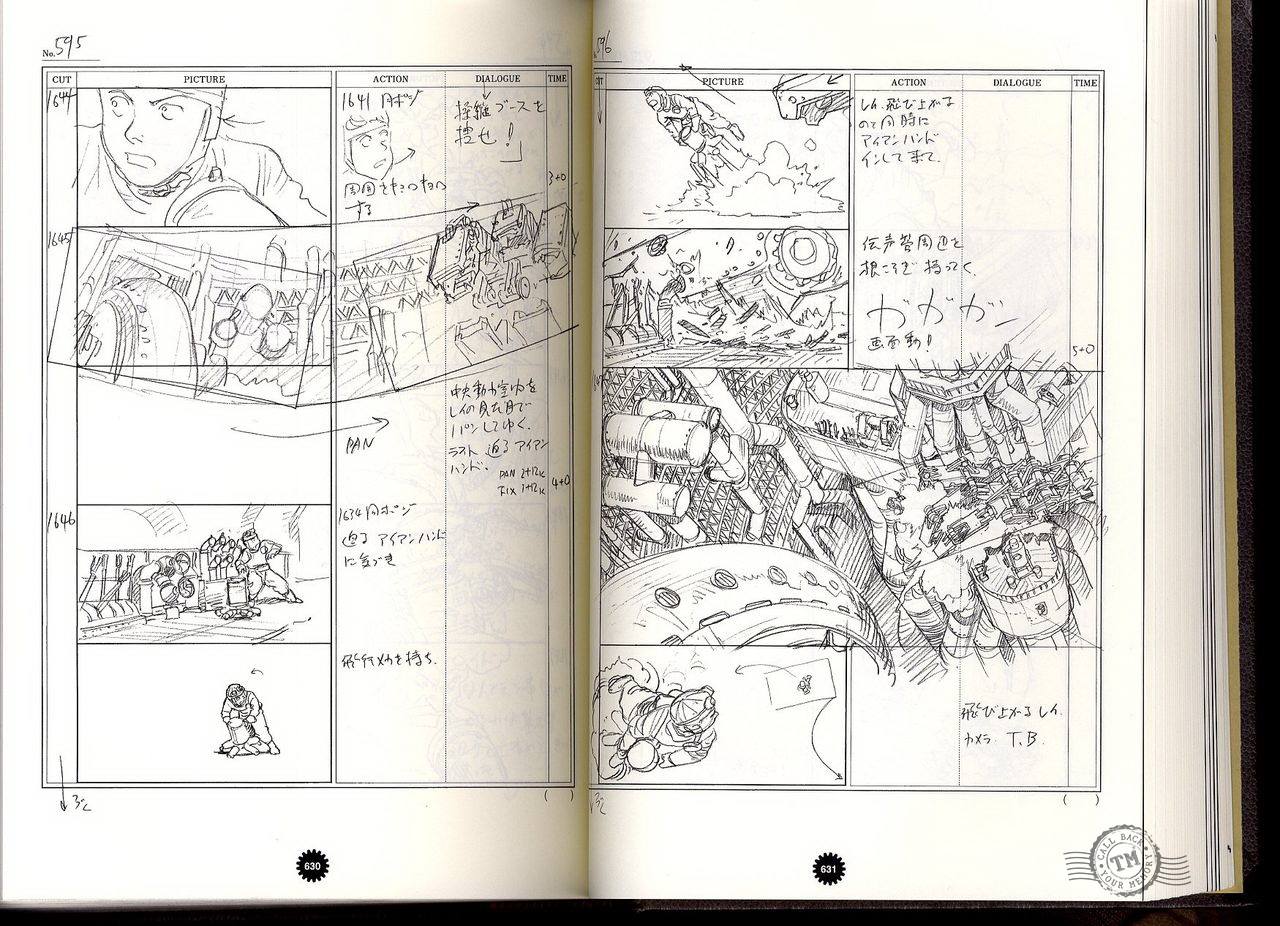 No. 595
CUT PICTURE ACTION DIALOGUE TIME
1644
1641 同ポジ
操縦ブースを
捨也!」
周囲をキョロキョロ
する
3+0
1645
PAN
中央動力室内を
レイの見た目で
パンしてゆく。
ラスト 迫るアイアン
ハンド。
PAN 2+12K
FIX 1+12K
4+0
1646
1634 同ポジ
迫る アイアンハンド
に気づき
飛行メカを持ち、
( )
630
596
PICTURE ACTION DIALOGUE TIME
レイ、飛び上がる
のと同時に
アイアンハンド
インして来て、
伝声管周辺を
根こそぎ持ってく、
ガガガー
画面動!
5+0
飛び上がるレイ、
カメラ T.B.
( )
631
CALL BACK
TM
YOUR MEMORY